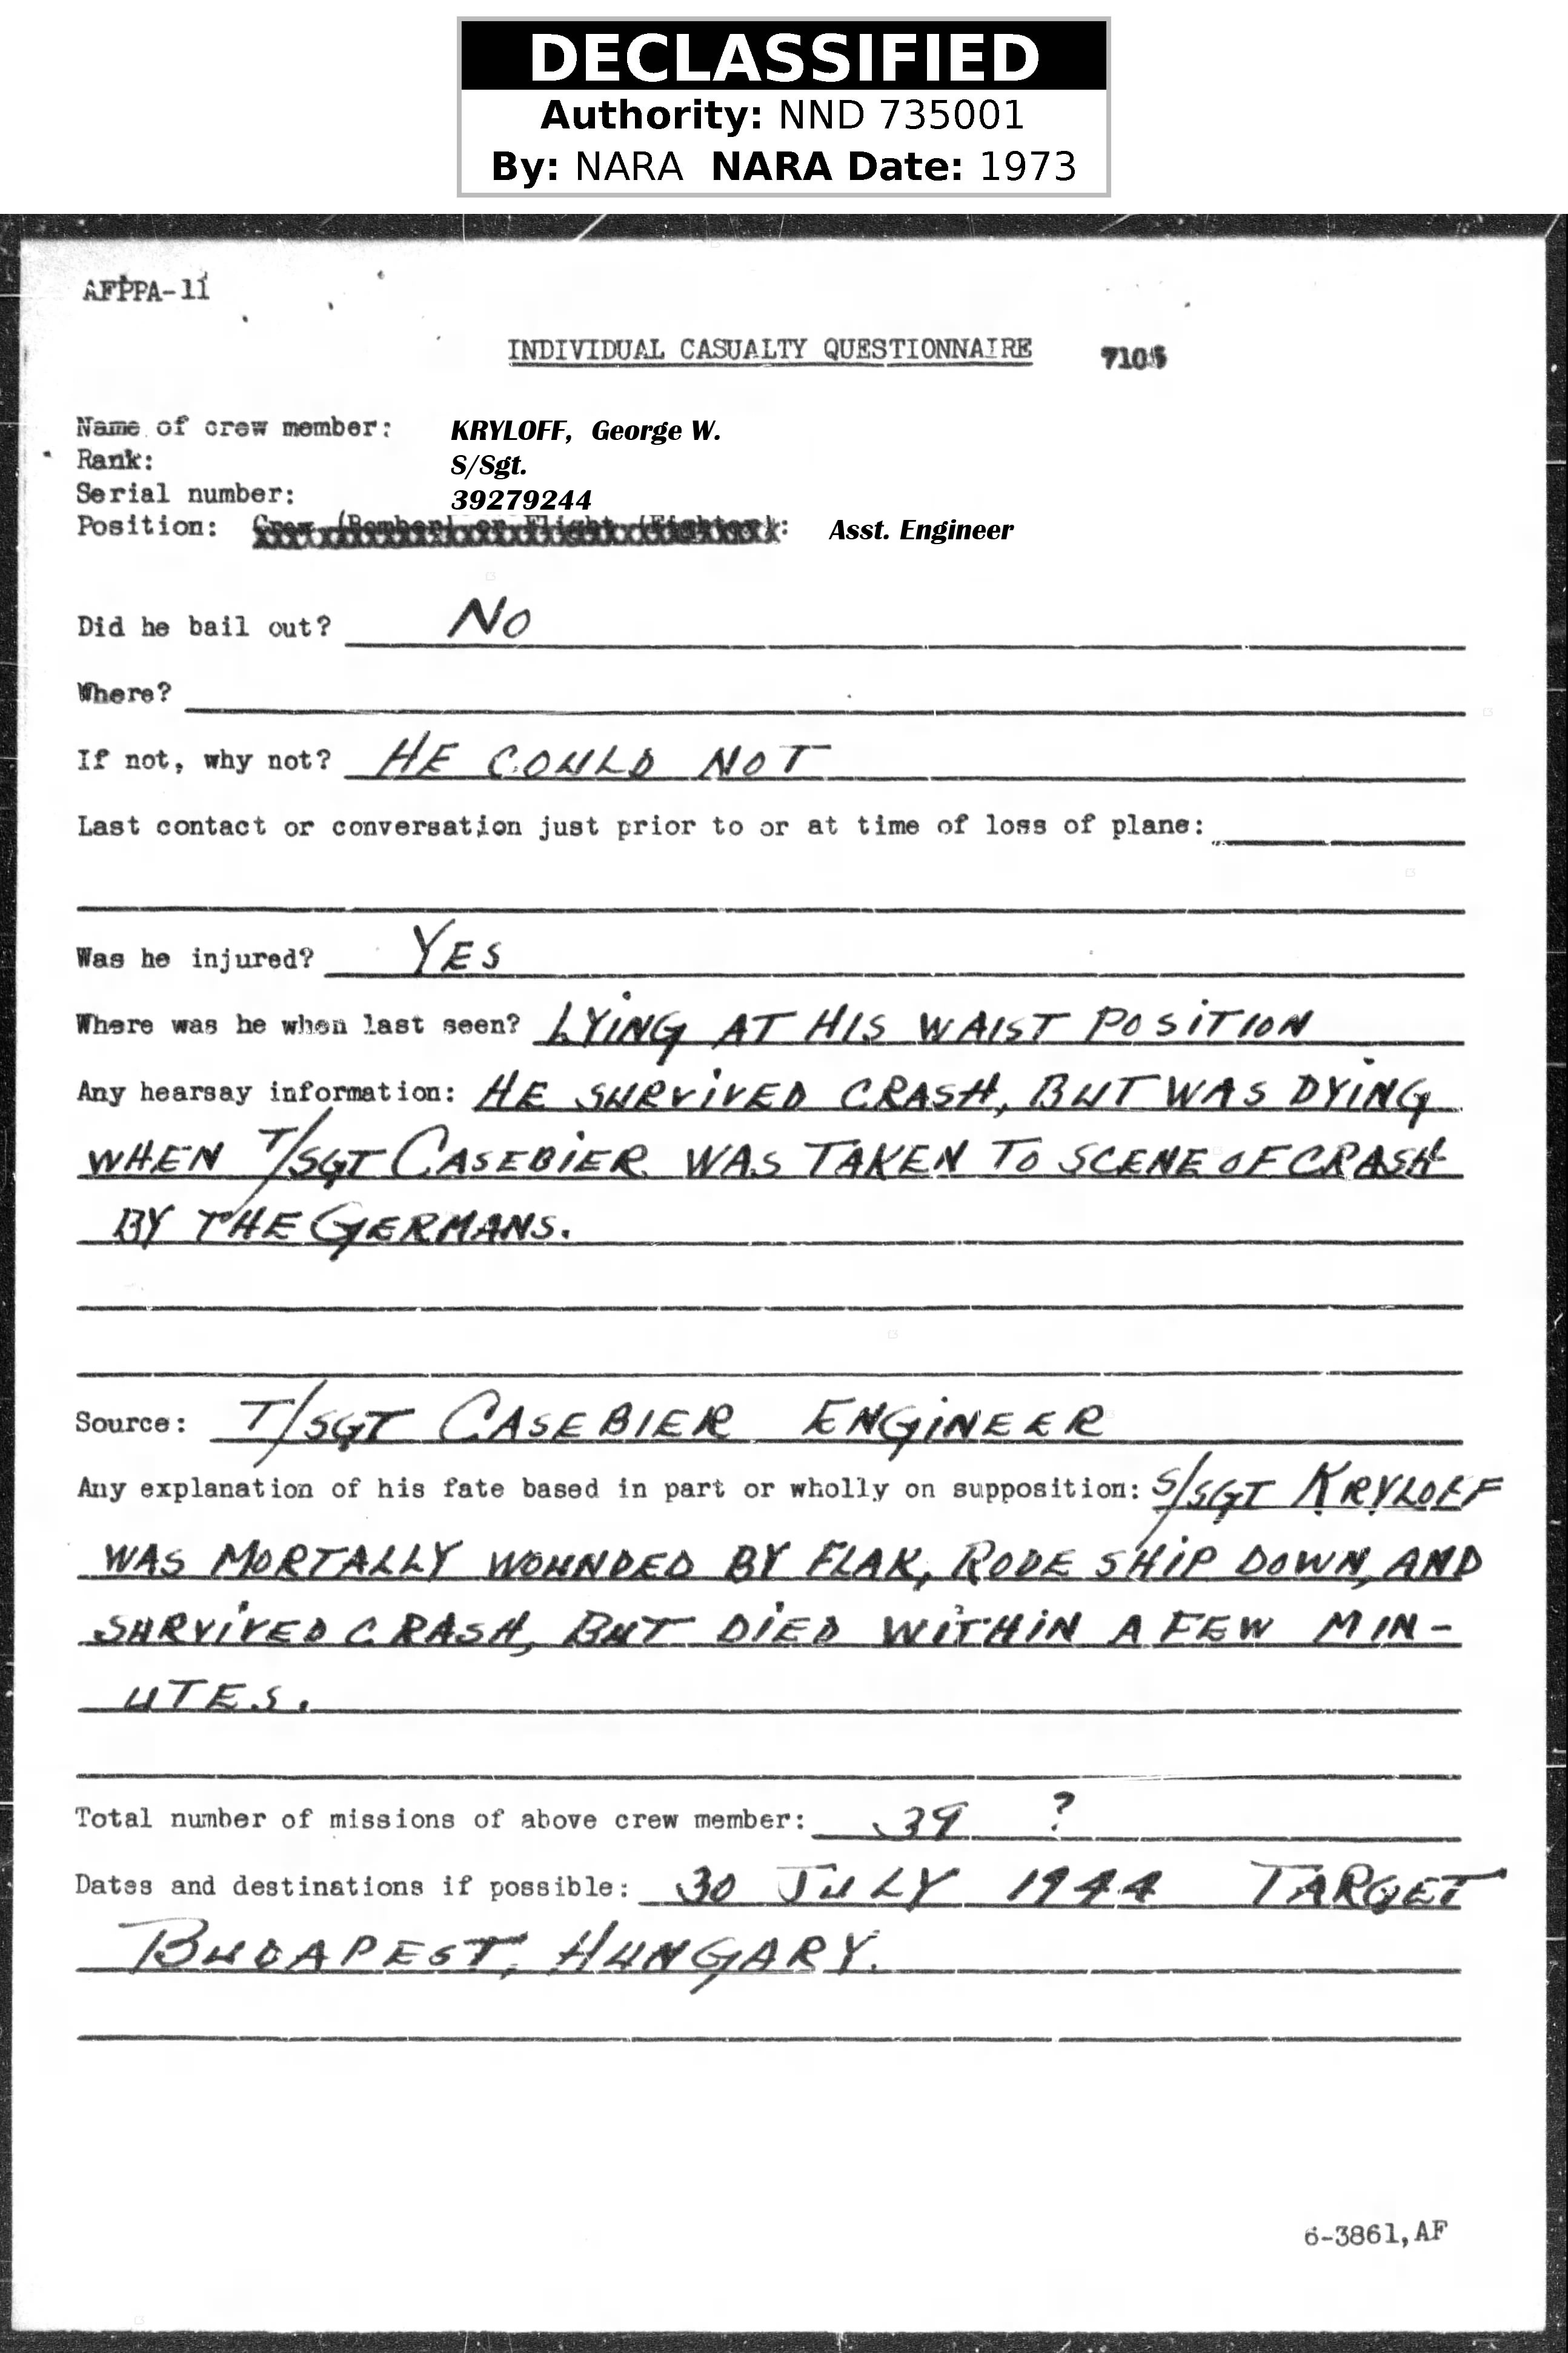 DECLASSIFIED
Authority: NND 735001
By: NARA NARA Date: 1973
AFPPA-11
INDIVIDUAL CASUALTY QUESTIONNAIRE 7105
Name of crew member: KRYLOFF, George W.
Rank: S/Sgt.
Serial number: 39279244
Position: Crew (Bomber) or Flight (Fighter): Asst. Engineer
Did he bail out? NO
Where?
If not, why not? HE COULD NOT
Last contact or conversation just prior to or at time of loss of plane:
Was he injured? YES
Where was he when last seen? LYING AT HIS WAIST POSITION
Any hearsay information: HE SURVIVED CRASH, BUT WAS DYING
WHEN T/SGT CASEBIER WAS TAKEN TO SCENE OF CRASH
BY THE GERMANS.
Source: T/SGT CASEBIER ENGINEER
Any explanation of his fate based in part or wholly on supposition: S/SGT KRYLOFF
WAS MORTALLY WOUNDED BY FLAK, RODE SHIP DOWN, AND
SURVIVED CRASH, BUT DIED WITHIN A FEW MIN-
UTES.
Total number of missions of above crew member: 39 ?
Dates and destinations if possible: 30 JULY 1944 TARGET
BUDAPEST, HUNGARY.
6-3861,AF